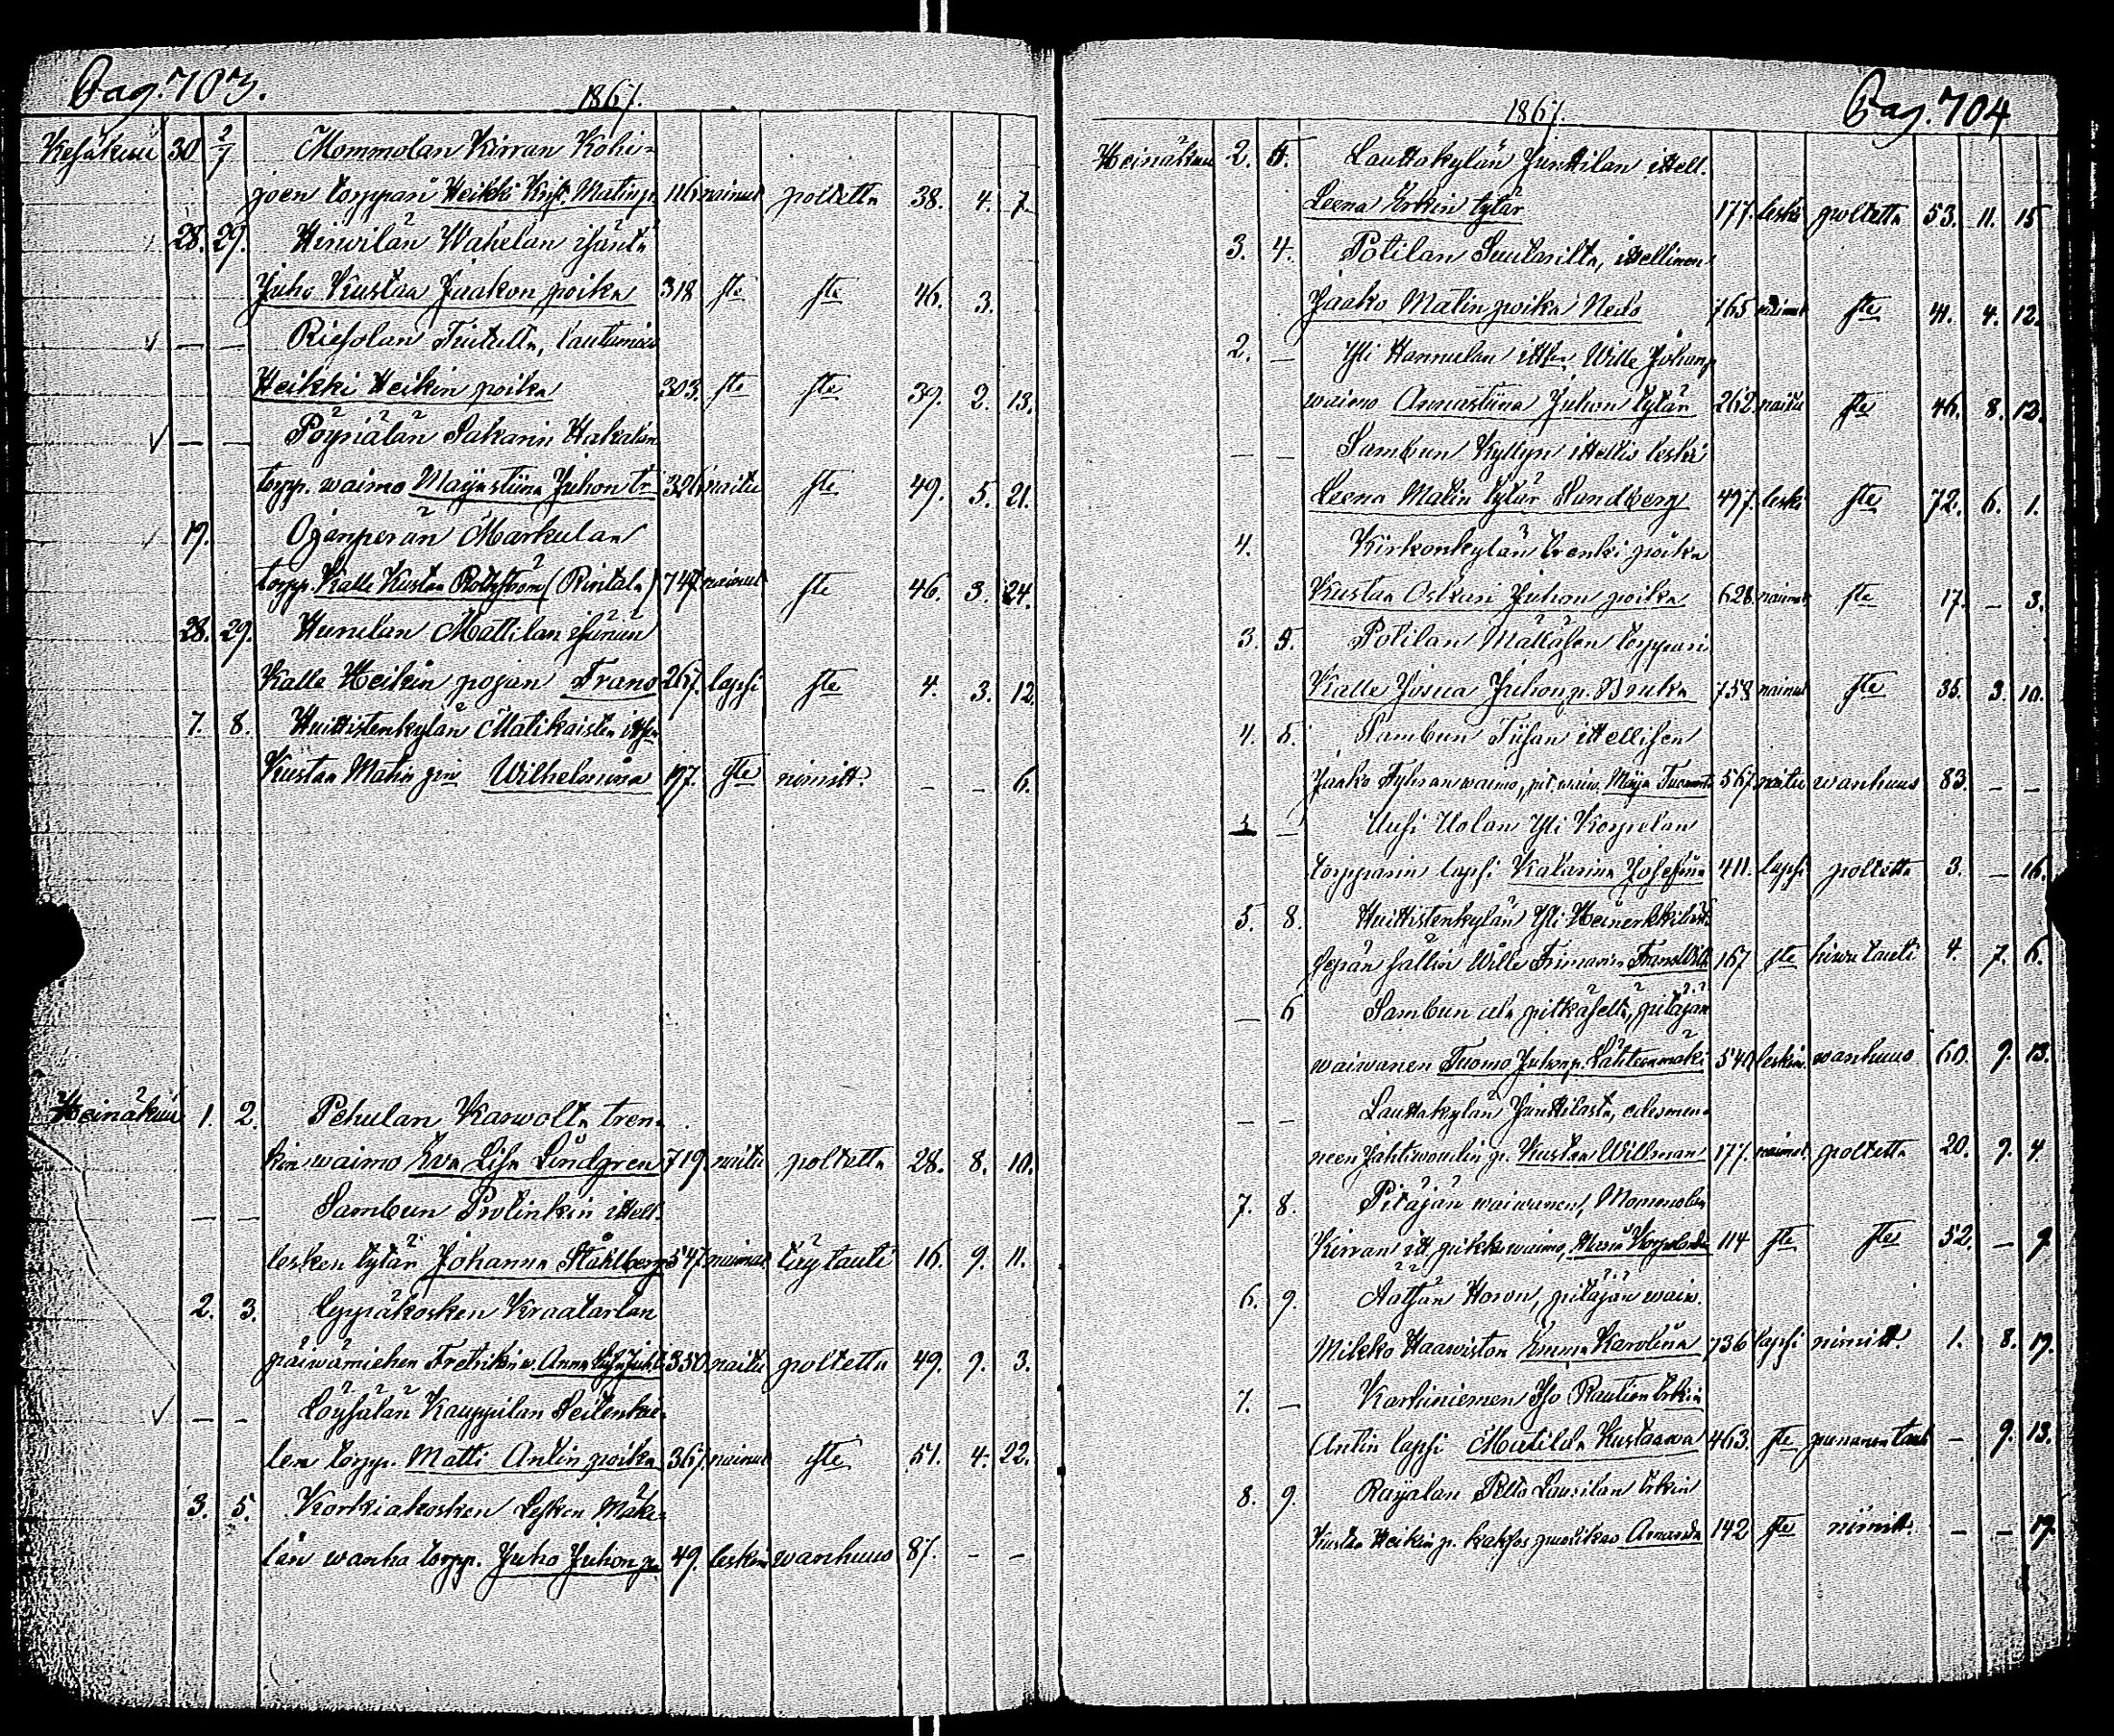 Pag. 703.
1867.
Kesäkuu 30 2/7 Mommolan Kirran Kohi-
joen torppari Heikki Krist. Matinp. 116 nainut poltetta 38. 4. 7
28. 29. Hirwilän Wahelan isäntä
Juho Kustaa Jaakon poika 318 ste ste 46. 3.
— — Riesolan Tiitulta, lautamies
Heikki Heikin poika 303. ste ste 39. 2. 13.
— — Pöyriälän Sakarin Hakalan
torpp. waimo Maijastiina Juhon tr. 326 naitu ste 49. 5. 21.
19. Ojanperän Markulan
torpp. Kalle Kustaa (Rintala) 747 nainut ste 46. 3. 24.
28. 29. Hurulan Mattilan isänän
Kalle Heikin pojan Frans 267. lapsi ste 4. 3. 12.
7. 8. Huittistenkylän Matikaisten
Kustaa Matin pin Wilhelmiina 197. ste nimitt. — — 6.
Heinäkuu 1. 2. Pehulan Karwolta tren-
kin waimo Eva Lisa Lindgren 719. naitu poltetta 28. 8. 10.
— — Sambun Prolinkin ittell.
lesken tytär Johanna Ståhlberg 547. naimat. täytauti 16. 9. 11.
2. 3. Leppäkosken Kraatarlan
päiwämiehen Fretrikin w. Anna Lisa Juht. 350 naitu poltetta 49. 9. 3.
— — Löysälän Kauppilan
len torpp. Matti Antin poika 367. nainut ste 51. 4. 22.
3. 5. Korkiakosken Lesken Mäke-
län wanha torpp. Juho Juhon p. 49. leskin wanhuus 87. — —
Pag. 704
1867.
Heinäkuu 2. 5. Lauttakylän Junttilan ittell.
Leena Erkin tytär 177. leski poltetta 53. 11. 15
3. 4. Potilan Suutarilta, ittellinen
Jaako Matin poika Neds 765 nainut ste 41. 4. 12.
2. — Yli Hannulan itsen. Wille Johanp.
waimo Annastiina Juhon tytär 262. naitu ste 46. 8. 12.
— — Sambun Kyllyn ittellis leski
Leena Matin tytär Sundberg 497. leski ste 72. 6. 1.
4. Kirkonkylän trenki poika
Kustaa Oskari Juhon poika 628. naimat. ste 17. — 3.
3. 5. Potilan Mälläsen torppari
Kalle Josua Juhon p. Bruka 758 nainut ste 35. 3. 10.
4. 5. Sambun Tiisan ittellisen
Jaako waimo, pit. waiw. Maija 567 naitu wanhuus 83. — —
5 — Uusi Uolan Yli Korpelan
torpparin lapsi Katariina Josefiina 411. lapsi poltetta 3. — 16.
5. 8. Huittistenkylän Yli
sepän sällin Wille Frans Wilh. 167 ste hiwutauti 4. 7. 6.
— 6 Sambun ula pitkäseltä, pitäjän
waiwanen Tuomo Juhonp. Lähteenmäki 540 leskin. wanhuus 60. 9. 13.
— — Lauttakylän Junttilasta, edesmen-
neen Jahtwoudin p. Kustaa Willman 177. naimat. poltetta 20. 9. 4.
7. 8. Pitäjän waiwanen, Mommolan
Kirran itt. piikkawaimo, Maria 114 ste ste 52. — 9
6. 9. Äätsän Howin, pitäjän waiw.
Mikko Haawiston Emma Karoliina 736 lapsi nimitt. 1. 8. 17.
7. — Karhiniemen Iso Raution Erkin
Antin lapsi Matilda Kustaawa 463. ste punanen taut. — 9. 13.
8. 9. Raijalan Pelto Laurilan Erkin
Kustaa Heikin p. kaksos puolikas Amanda 142 ste nimitt. — — 17.